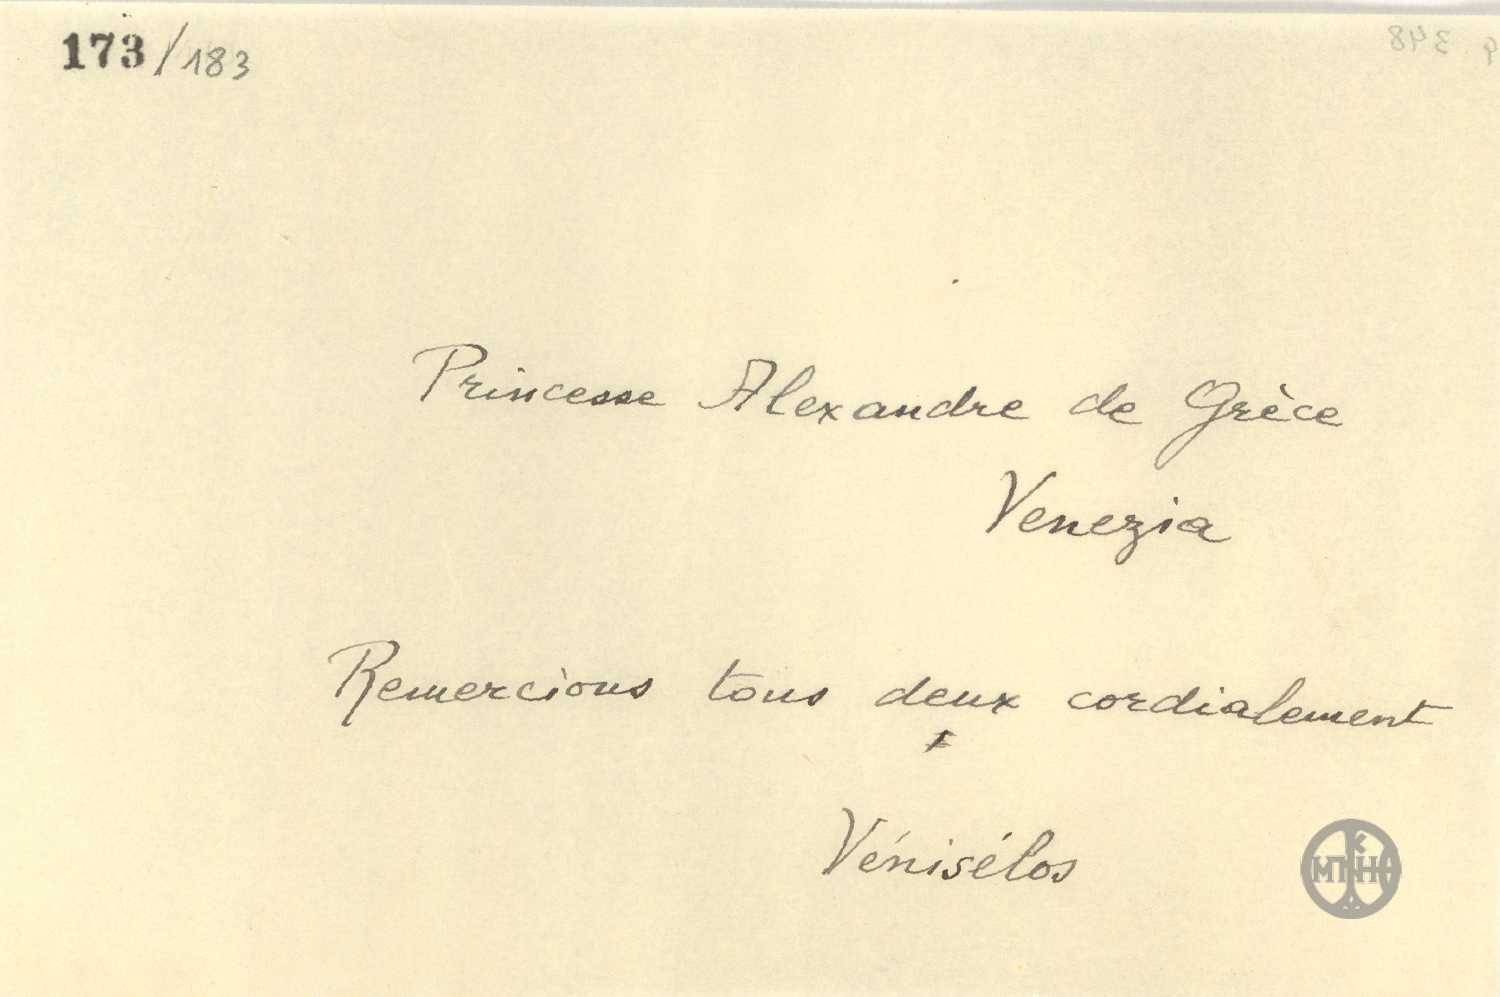 173/183
Princesse Alexandre de Grèce
Venezia
Remercions tous deux cordialement
Vénisélos